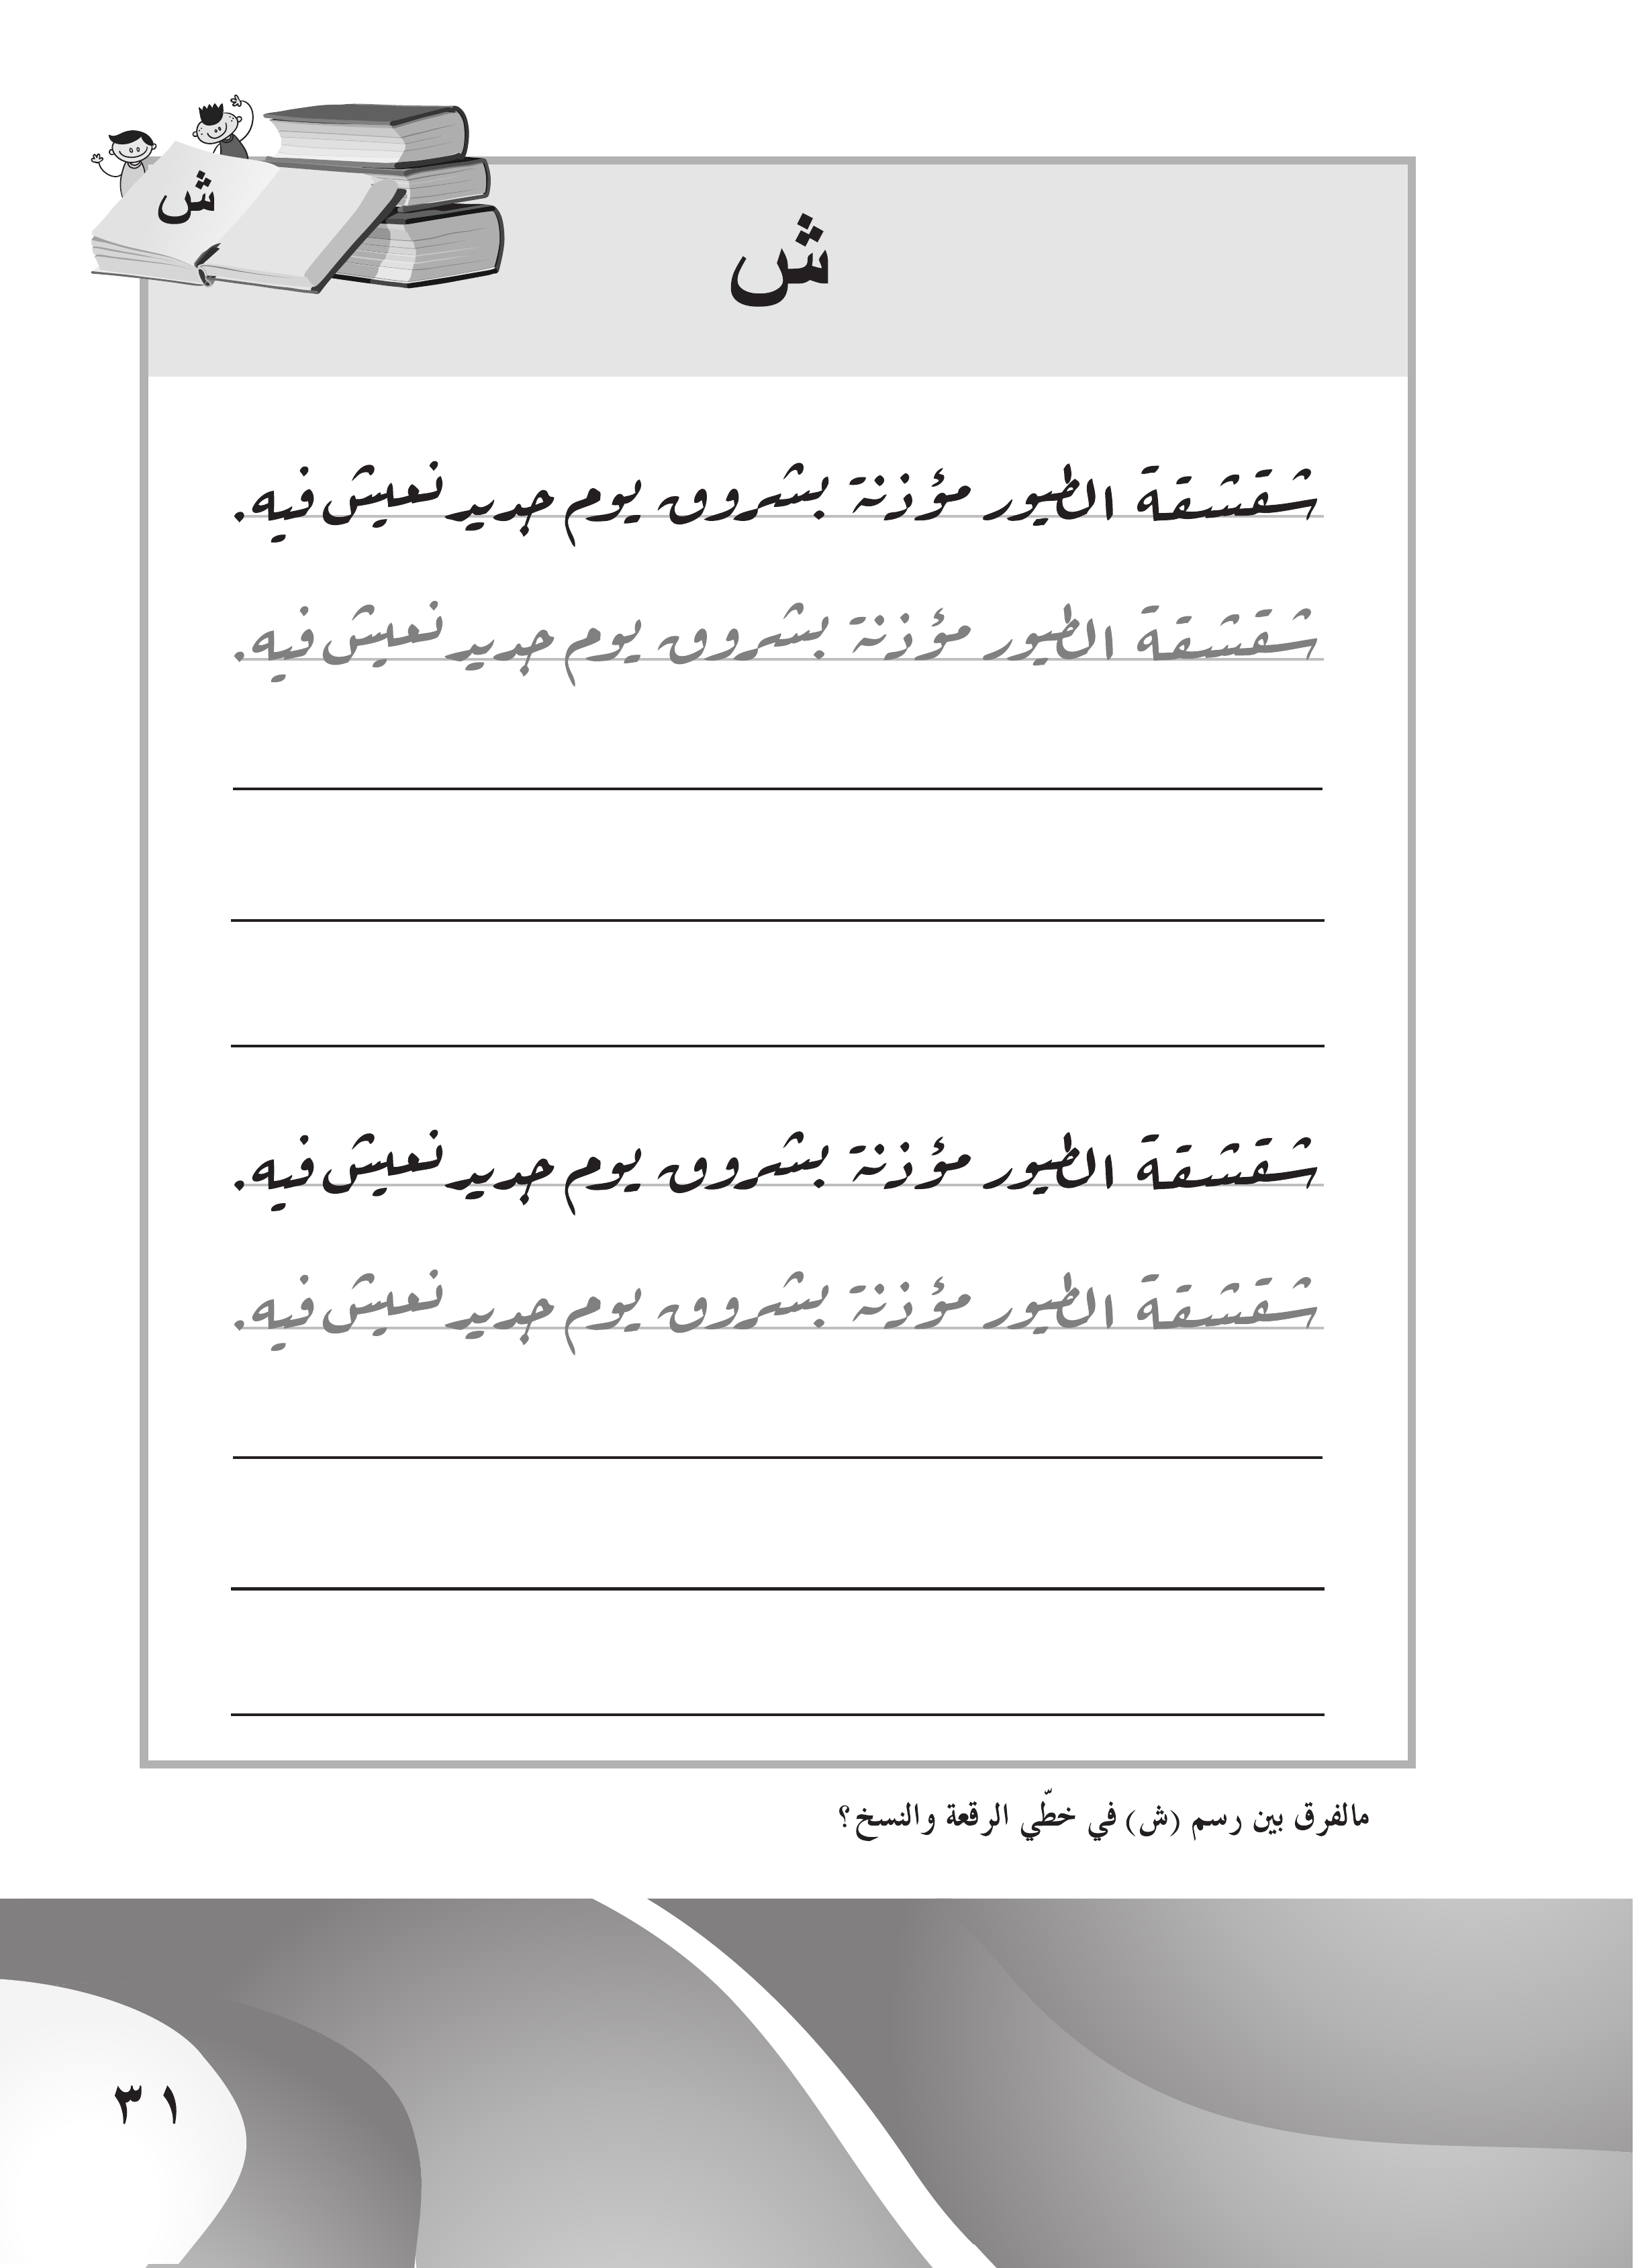 ش
ش
شقشقة الطيور مؤذنة بشروق يوم جديد نعيش فيه.
شقشقة الطيور مؤذنة بشروق يوم جديد نعيش فيه.
شقشقة الطيور مؤذنة بشروق يوم جديد نعيش فيه.
شقشقة الطيور مؤذنة بشروق يوم جديد نعيش فيه.
مالفرق بين رسم (ش) في خطّي الرقعة والنسخ؟
٣١